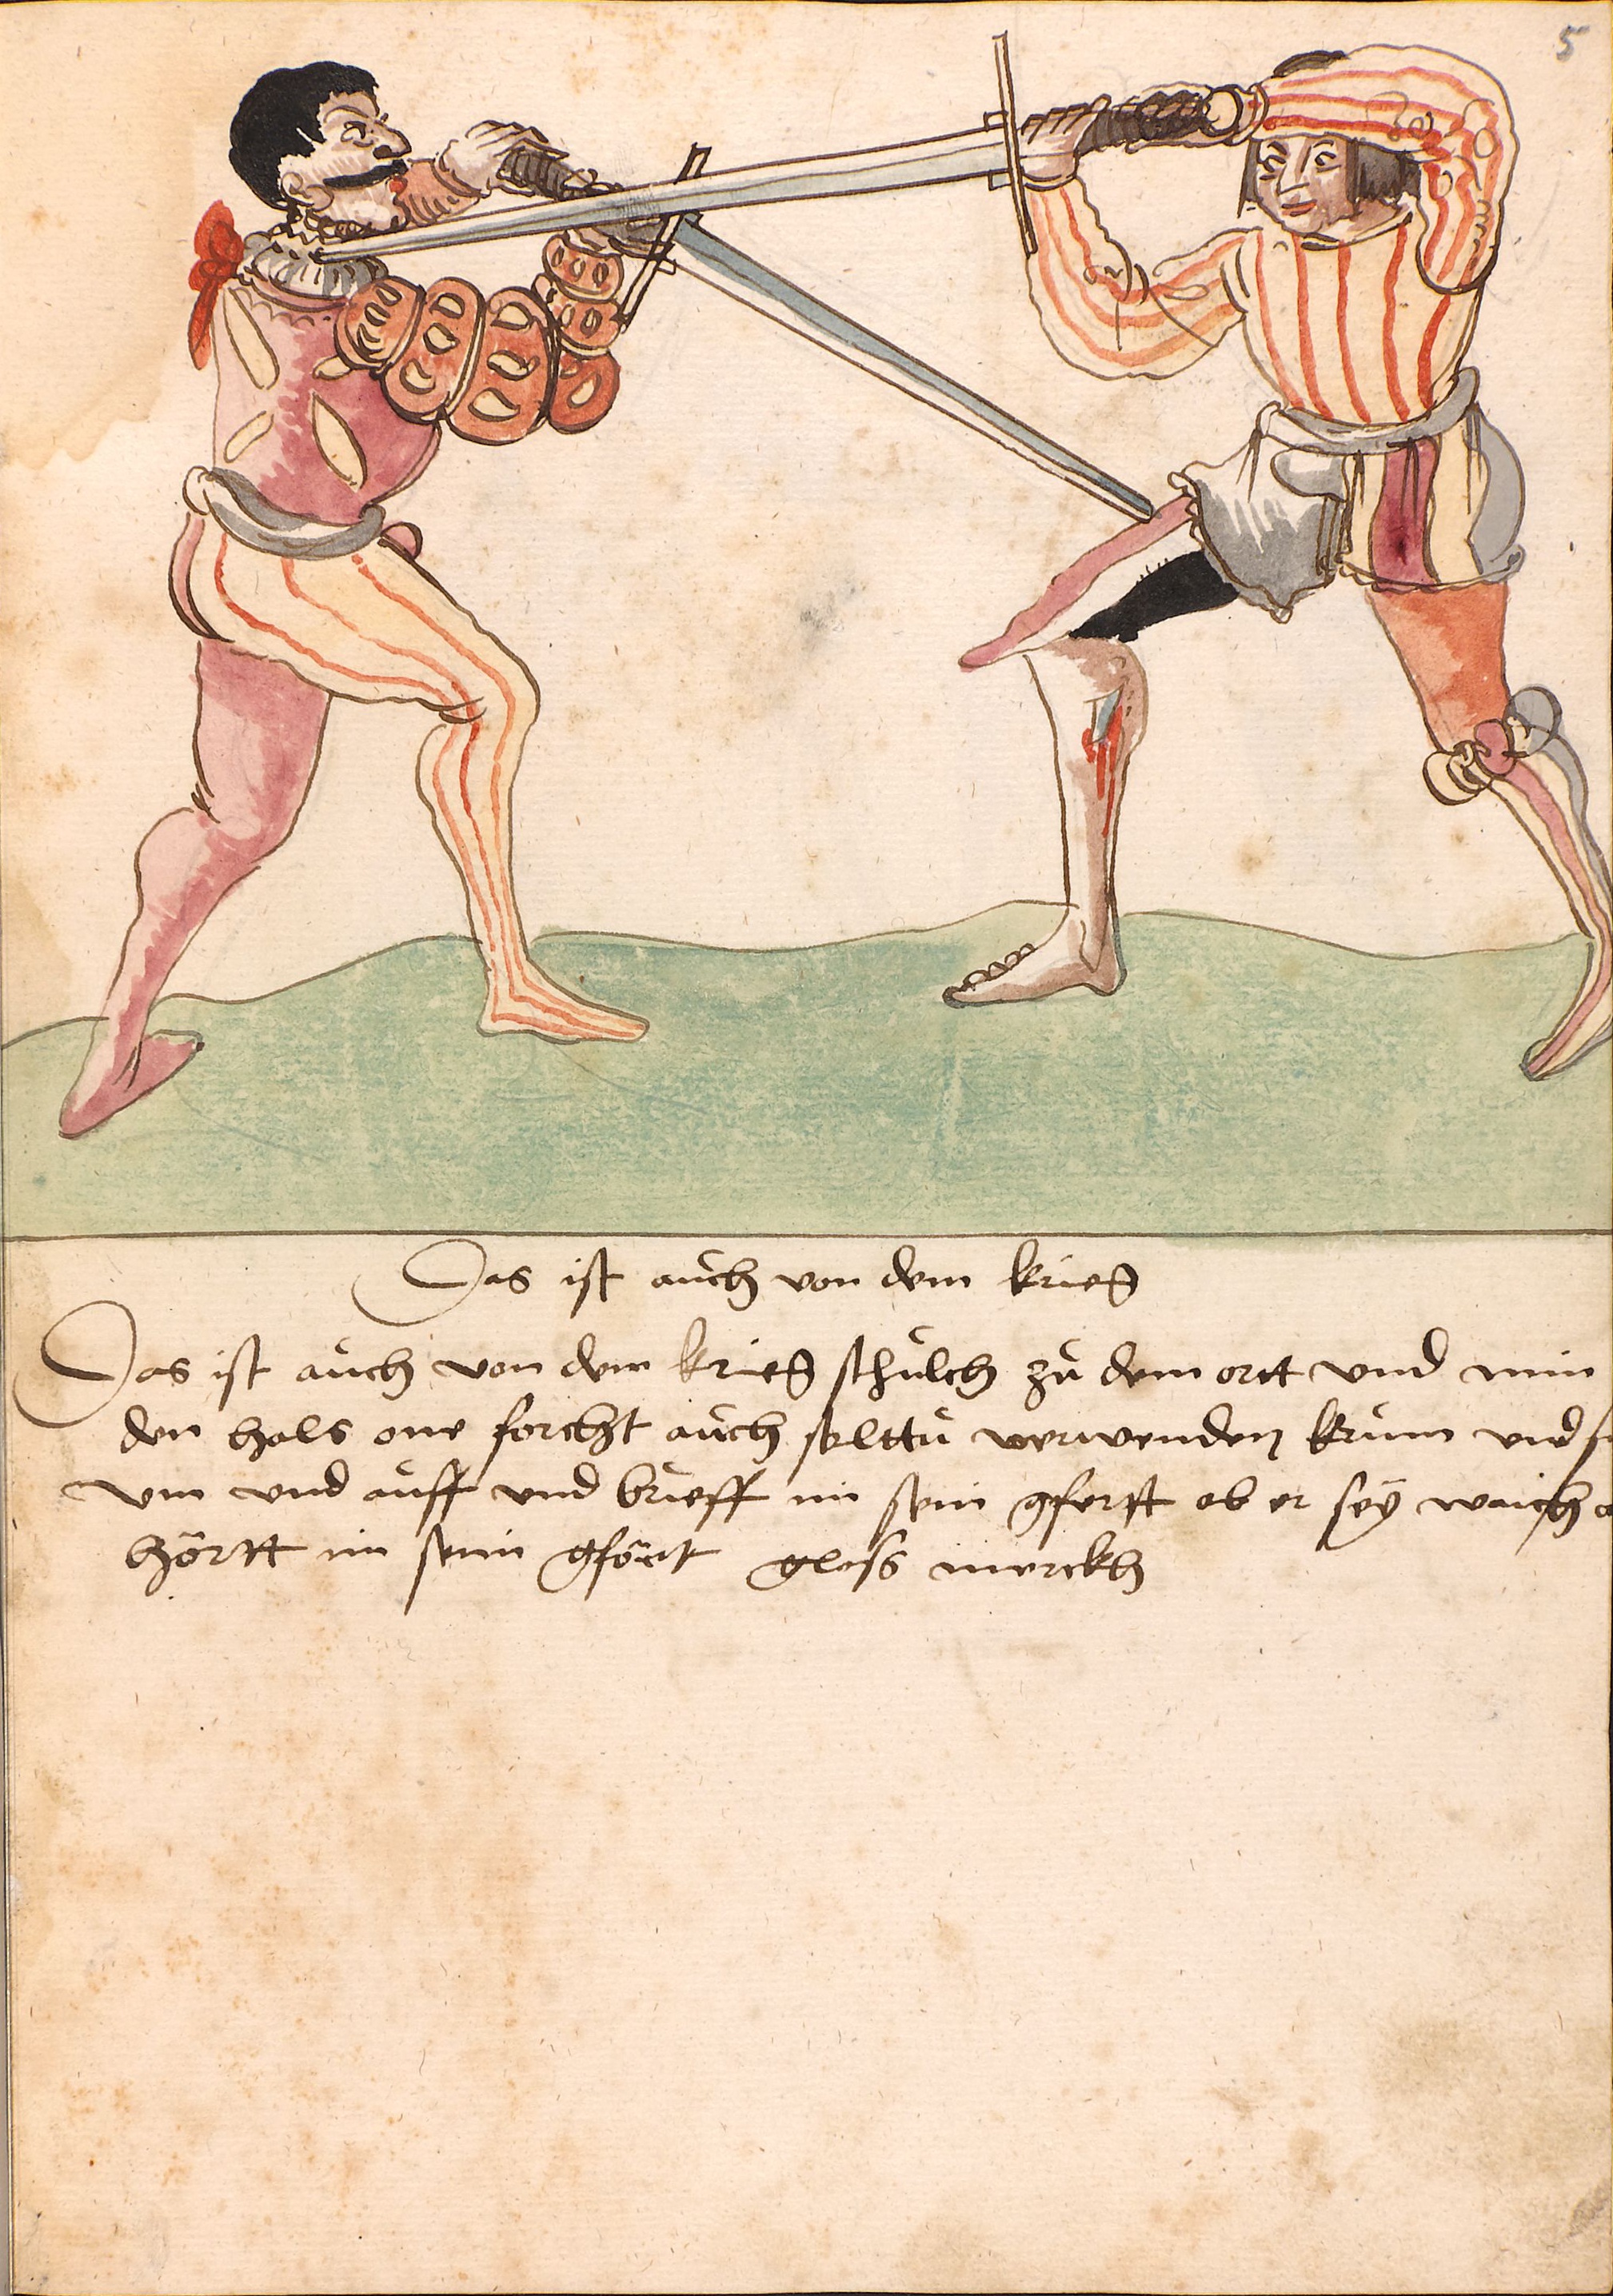 5
Das ist auch von dem krieg
Das ist auch von dem krieg schilch zu dem ort und nim
den hals one forcht auch solttu verwenden krum und
um und auff und brieff in sein gfertt ob er sey waich
hörtt in seim gfört gloss merckh